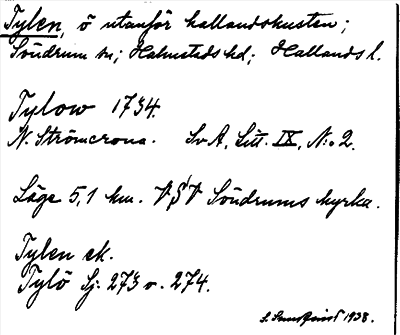 Tylen, ö utanför hallandskusten;
Söndrum sn; Halmstads hd; Hallands l.
Tylow 1734.
N. Strömcrona. Sv A, Litt. IX, N:o 2.
Läge 5,1 km. VSV Söndrums kyrka.
Tylen ek.
Tylö Sj. 273 v. 274.
1938.